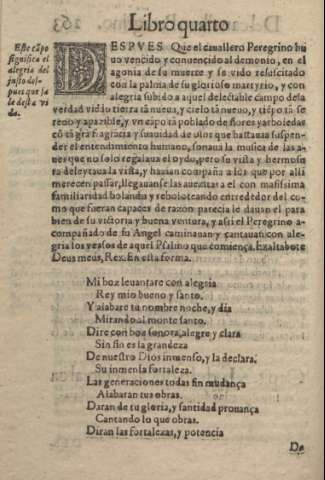 Libro quarto
Este cãpo
significa el
alegria del
justo des-
pues que sa
le desta vi
da.
DESPVES Que el cauallero Peregrino hu
uo vencido y conuencido al demonio, en el
agonia de su muerte y so vido resuscitado
con la palma de su glorioso martyrio, y con
alegria subido a aquel delectable campo de la
verdad vido tierra tã nueua, y cielo tã nueuo, y tiẽpo tã se
reno y apazible, y vn cãpo tã poblado de flores y arboledas
cõ tã grã fragrãcia y suauidad de olor que bastaua a suspen-
der el entendimiento humano, sonaua la musica de las a-
ues que no solo regalaua el oydo, pero su vista y hermosu
ra deleytaua la vista, y hazian compaña a los que por alli
merecen passar, llegauanse las auezitas a el con masissima
familiaridad bolando y reboloteando enrrededor del co-
mo que fueran capaces de razon parecia le dauan el para
bien de su victoria y buena ventura, y assi el Peregrino a-
compañado de su Angel caminauan y cantauan con ale-
gria los versos de aquel Psalmo que comiença, Exaltabo te
Deus meus, Rex. En esta forma.
Mi boz leuantare con alegria
Rey mio bueno y santo.
Y alabare tu nombre noche, y dia
Mirando al monte santo.
Dire con boz sonora, alegre y clara
Sin fin es la grandeza
De nuestro Dios inmenso, y la declara.
Su inmensa fortaleza.
Las generaciones todas sin mudança
Alabaran tus obras.
Daran de tu gloria, y santidad prouança
Cantando lo que obras.
Diran las fortalezas, y potencia
De